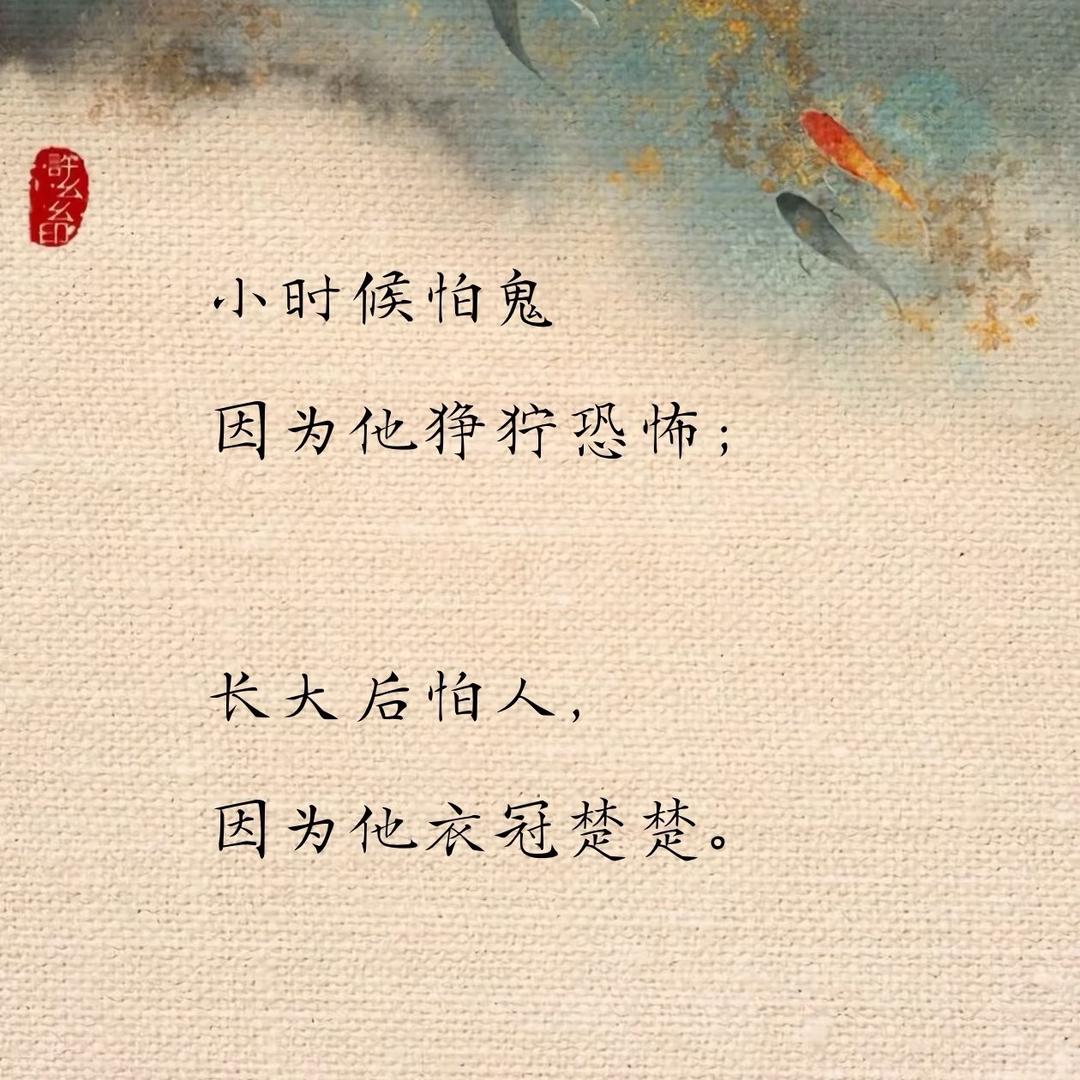 許幺幺印
小时候怕鬼
因为他狰狞恐怖；
长大后怕人，
因为他衣冠楚楚。